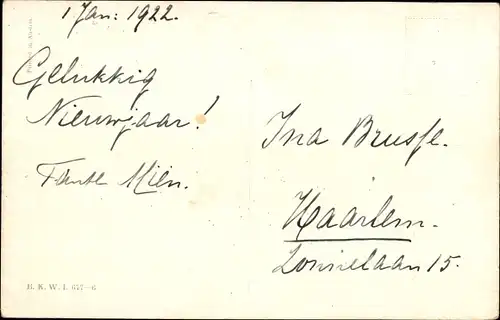 1 Jan: 1922.
Gelukkig
Nieuwjaar!
Tante Mien.
Ina Brusse.
Haarlem.
Zonnelaan 15.
B. K. W. I. 677-6